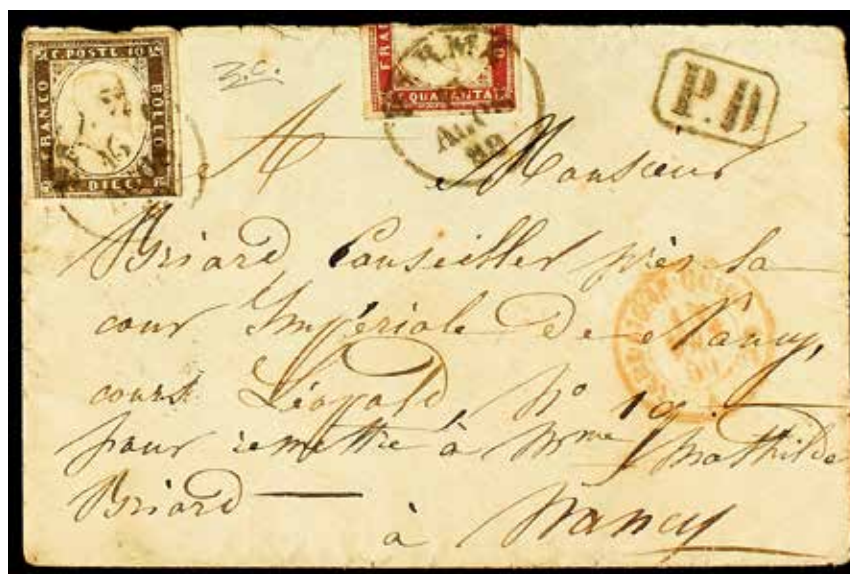 C. POSTE 10
FRANCO
BOLLO
DIECI
QUARANTA
P.D
A Monsieur
Briard Conseiller près la
cour Impériale de Nancy,
cours Léopold, No 19.
pour remettre à Mme Mathilde
Briard
à Nancy